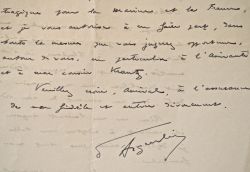 tragique pour la marine et la France,
et je vous autorise à en faire part, dans
toute la mesure que vous jugerez opportune,
autour de vous, en particulier à l'Amirauté
et à mon cousin Krantz.
Veuillez croire, Amiral, à l'assurance
de mon fidèle et entier dévouement.